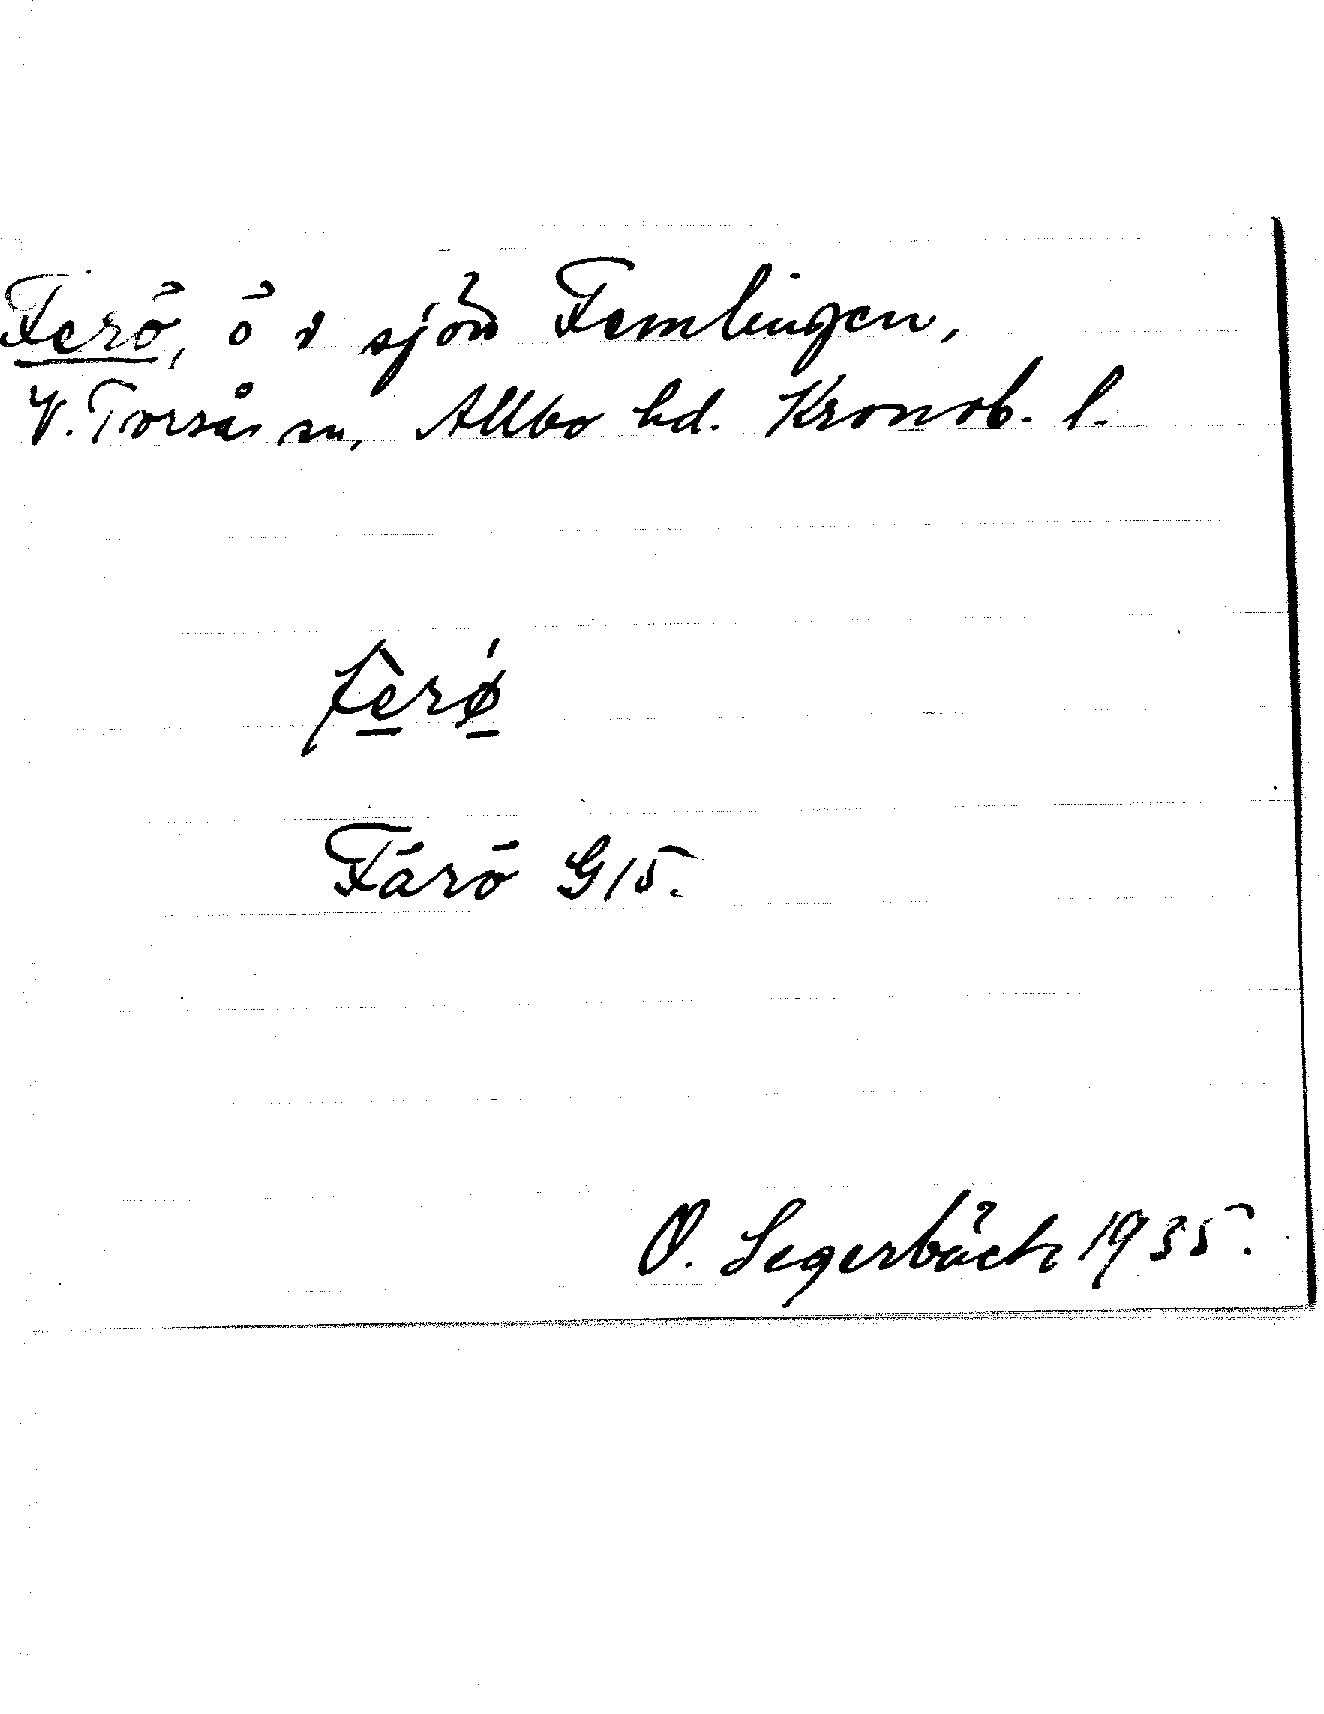 Ferö, ö i sjön Femlingen,
V. Torsås sn, Allbo hd. Kronob. l.
fèrǿ
Färö G15.
O. Segerbäck 1935.